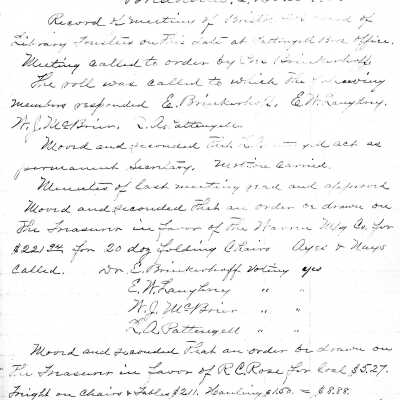 Record of meeting of Bristol Board of
Library Trustees on this date at Pattengell Bros Office.
Meeting called to order by Pres Brinkerhoff
The roll was called to which the following
members responded E. Brinkerhoff, E.W. Laughry,
W.J. McBrier, L.A. Pattengell.
Moved and seconded that L.A. act as
permanent Secretary. Motion carried.
Minutes of last meeting read and approved
Moved and seconded that an order be drawn on
the Treasurer in favor of the Warren Mfg Co. for
for 20 doz folding Chairs Ayes & Nays
called. Dr. E. Brinkerhoff Voting yes
E.W. Laughry " "
W.J. McBrier " "
L.A. Pattengell " "
Moved and seconded that an order be drawn on
the Treasurer in favor of R.C. Rose for Coal $5.27.
Freight on Chairs & Tables $2.11. Hauling $1.50. = $8.88.